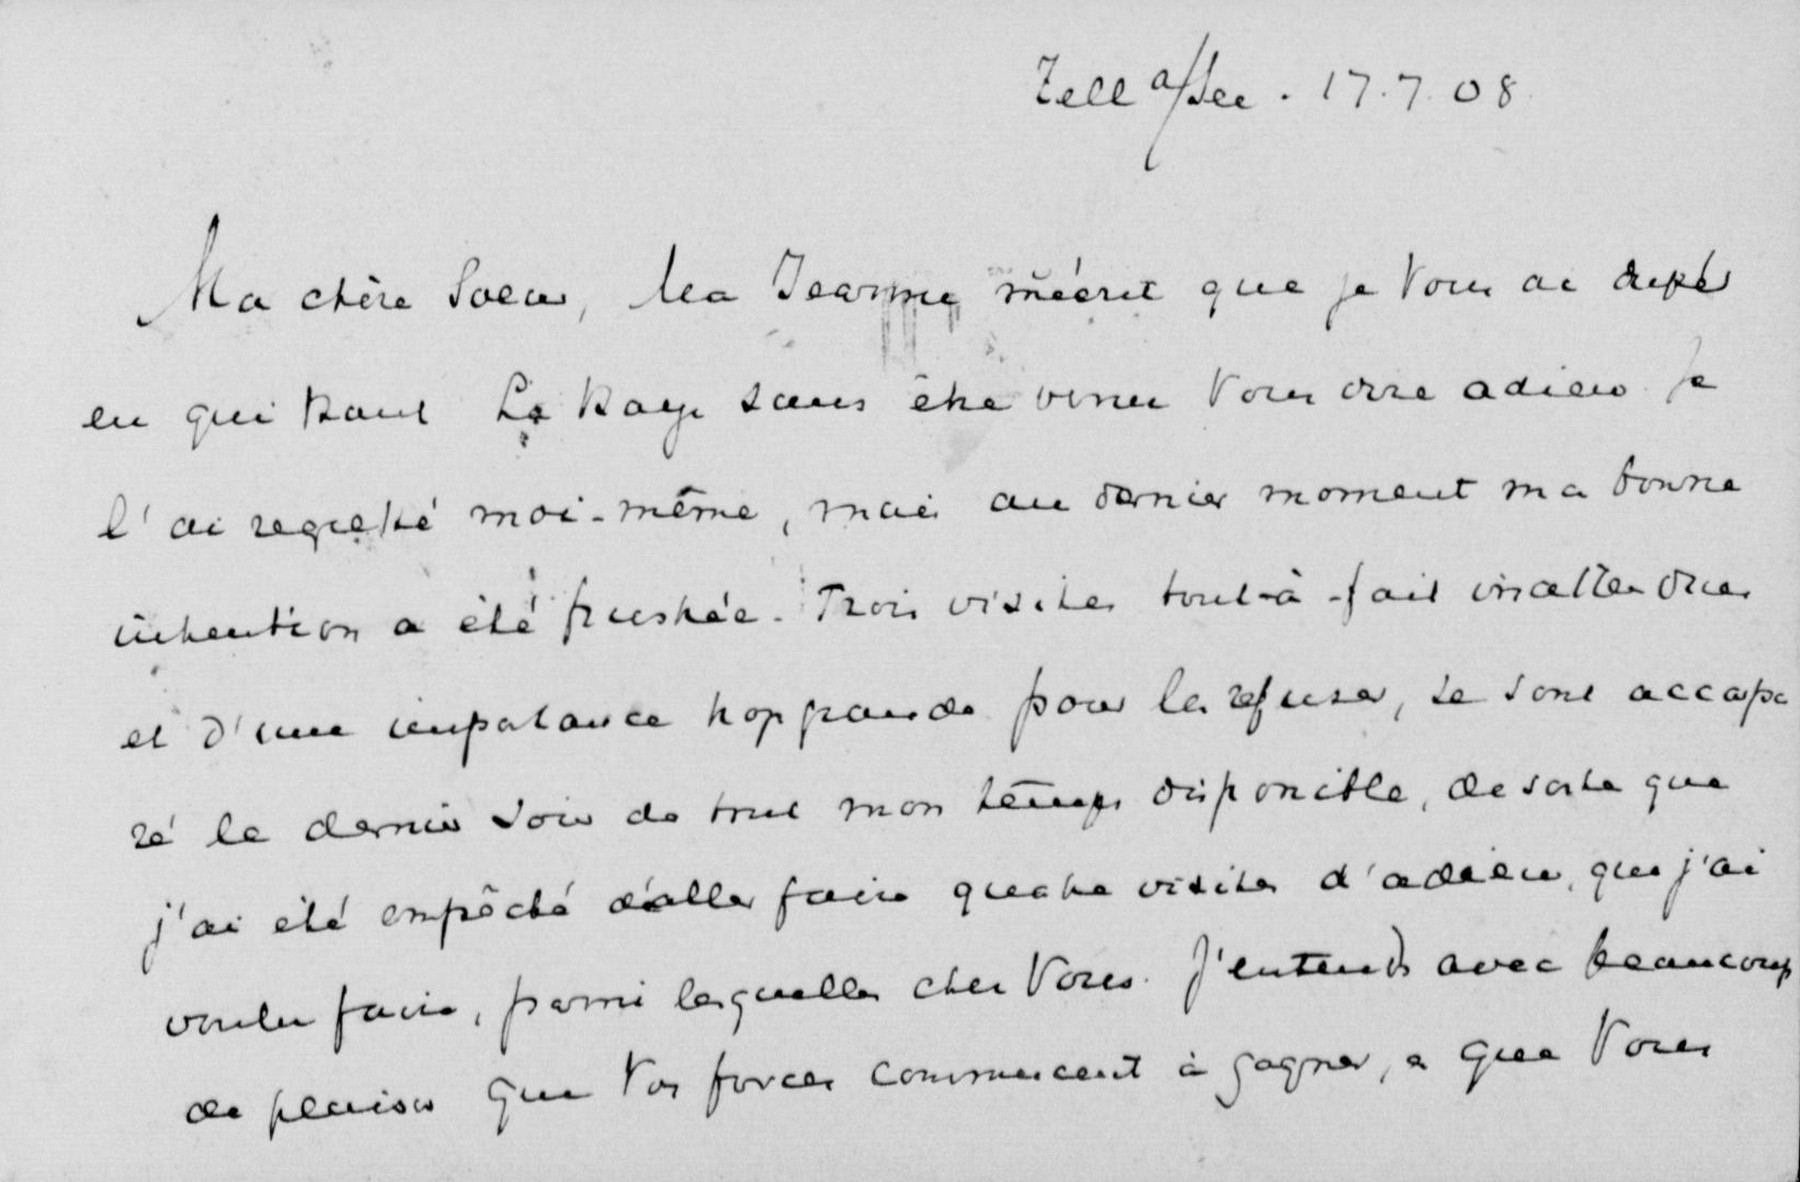 Zell a/See. 17.7.08
Ma chère Soeur, Ma Jeanne m'écrit que je Vous ai
en quittant La Haye sans être venu Vous dire adieu. Je
l'ai regretté moi-même, mais au dernier moment ma bonne
intention a été frustrée. Trois visites tout-à-fait inattendues
et d'une importance trop grande pour les refuser, se sont accapa
ré le dernier soir de tout mon temps disponible, de sorte que
j'ai été empêché d'aller faire quatre visites d'adieu, que j'ai
voulu faire, parmi lesquelles chez Vous. J'entends avec beaucoup
de plaisir que Vos forces commencent à gagner, e que Vous